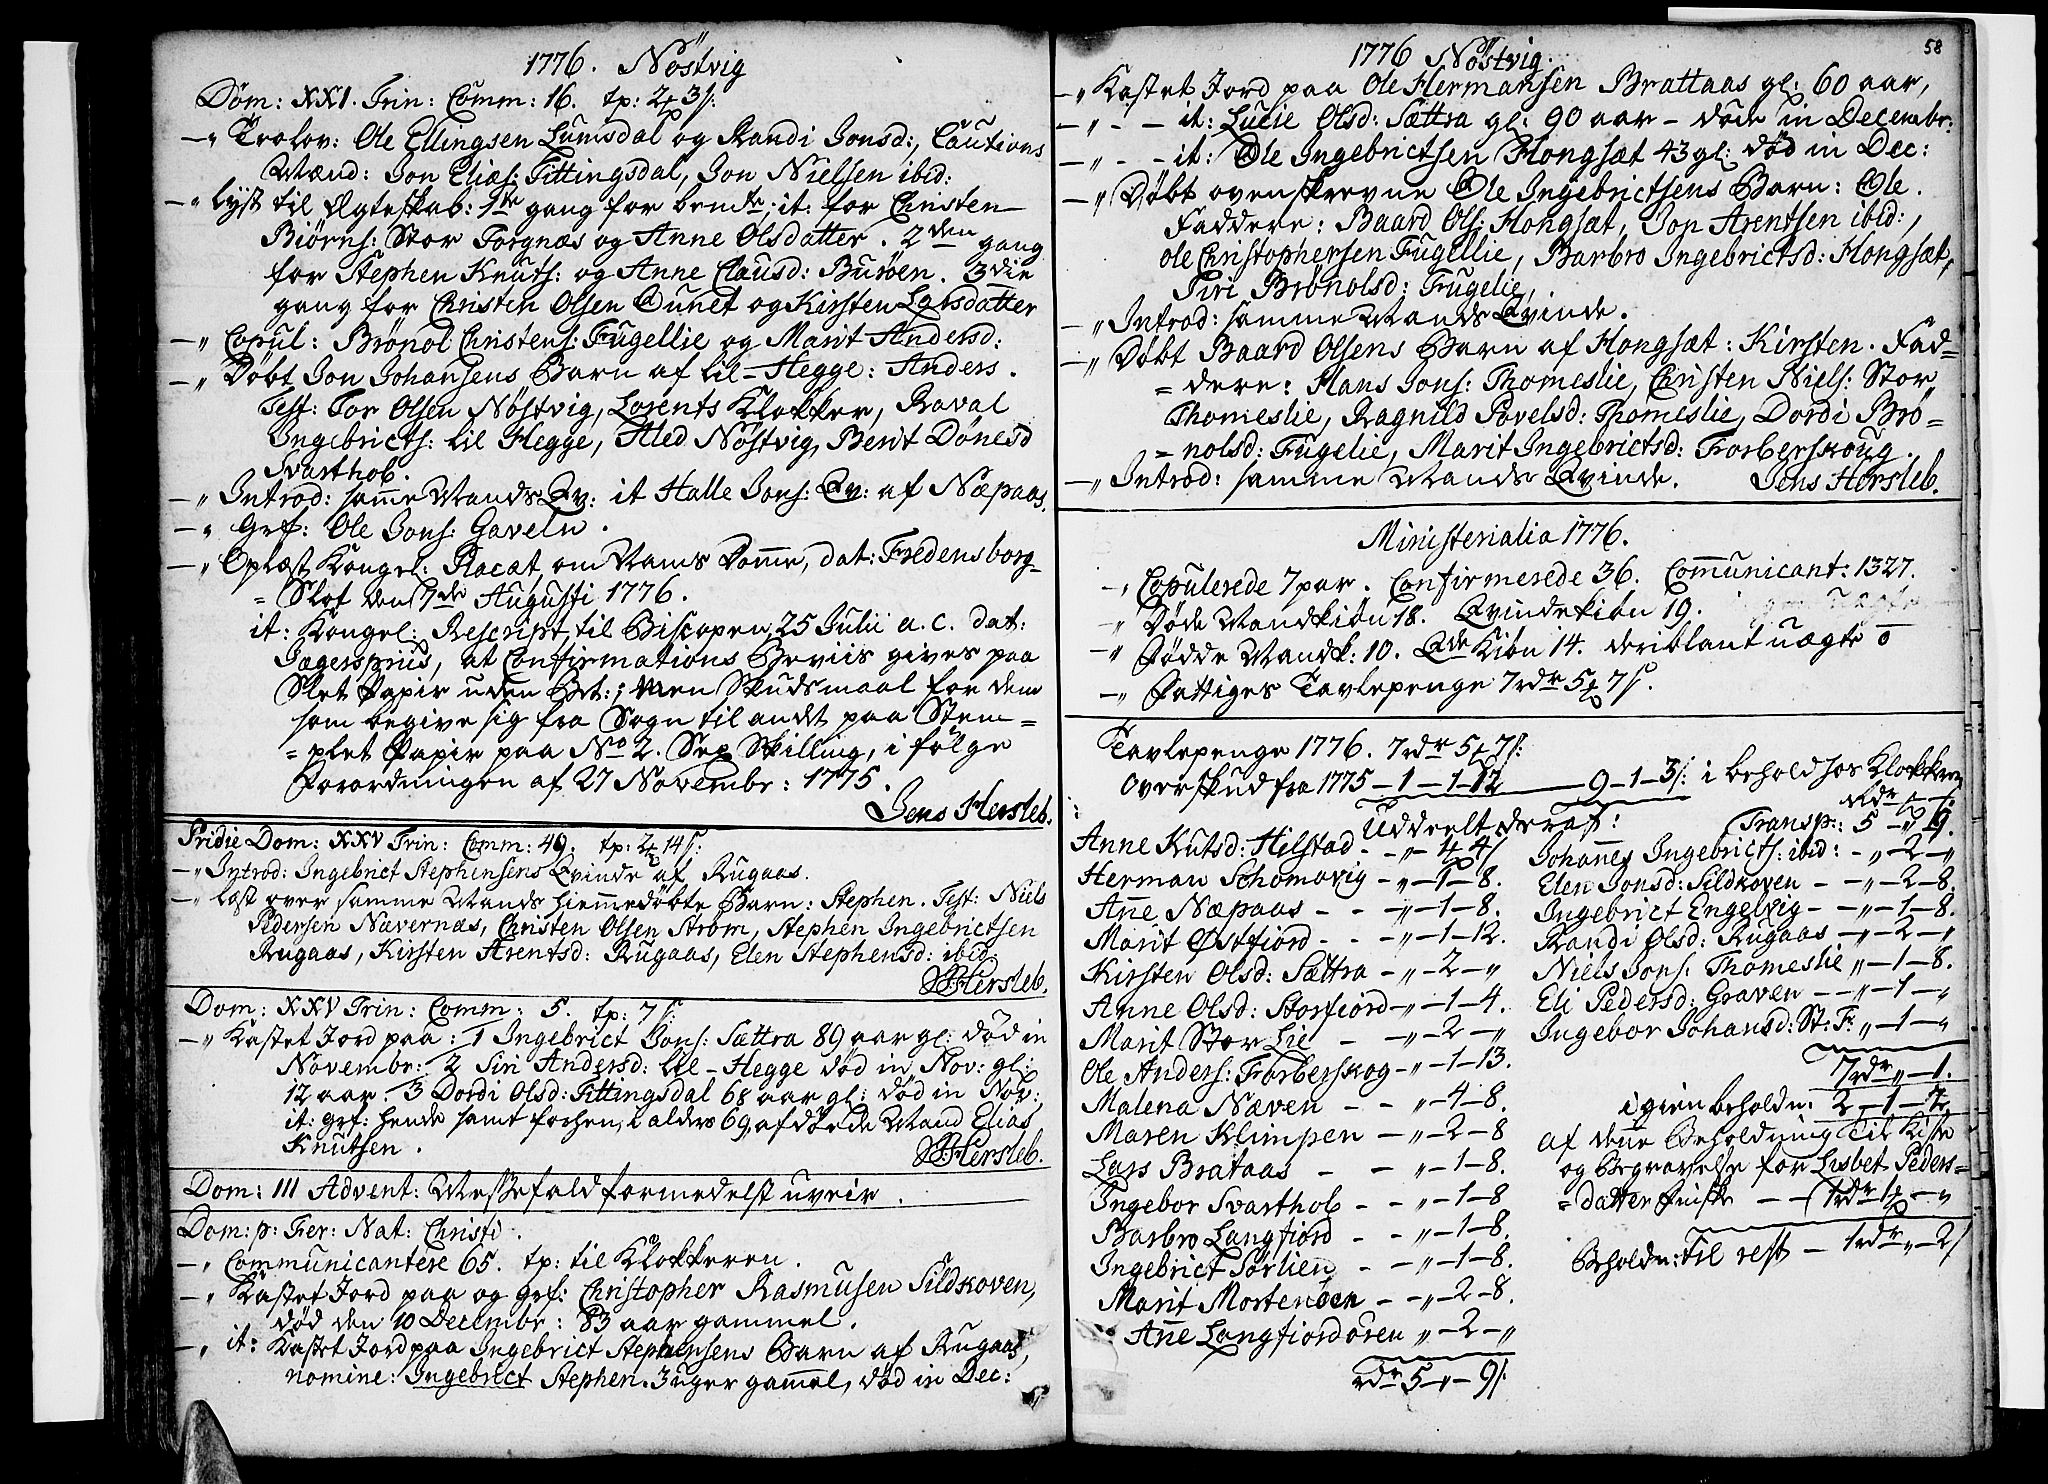 1776. Nöstvig
Döm: XXI. Trin: Comm: 16. tp: 2 3 s:
—" Trolov: Ole Ellingsen Lumsdal og Randi Jonsd:, Cautions
Mænd: Jon Elias: Fittingsdal, Jon Nielsen ibid:
—" lyst til Ægteskab: 1ste gang for bemte; it: for Christen
Biörns: Stor Torgnæs og Anne Olsdatter. 2den gang
for Stephen Knuts: og Anne Clausd: Buröen. 3die
gang for Christen Olsen Ounet og Kirsten Larsdatter
—" Copul: Brönol Christens: Fugellie og Marit Andersd:
—" Döbt Jon Johansens Barn af lil-Hegge: Anders.
Test: Tor Olsen Nöstvig, Lorents Klokker, Raval
Ingebricts: lil Hegge, Aled Nöstvig, Berit Dönesd
Svarthob.
—" Introd: samme Mands Qv: it Halle Jons: Qv: af Næpaas.
—" Grf: Ole Jons: Gaveln.
—" Oplæst Kongel: Placat, om Vams Domme, dat: Fredensborg-
= Slot den 7de Augusti 1776.
it: Kongel: Rescript, til Biscopen, 25 Julii a. c. dat:
Jægerspriis, at Confirmations Beviis gives paa
Slet Papir uden Bet:; men Skudsmaal for dem
som begive sig fra Sogn til andt paa Stem=
=plet Papir paa No 2. Sex Skilling, i fölge
Forordningen af 27 Novembr: 1775.
Jens Hersleb.
Pridie Dom: XXV Trin: Comm: 49. tp: 2 14 s:
—" Introd: Ingebrict Stephensens Qvinde af Rugaas.
—" læst over samme Mands hiemmedöbte Barn: Stephen. Test: Niels
Pedersen Navernæs, Christen Olsen Ström, Stephen Ingebrictsen
Rugaas, Kirsten Arentsd: Rugaas, Elen Stephensd: ibid.
JHersleb.
Dom: XXV Trin: Comm: 5. tp: 7 s:
—" Kastet Jord paa: 1 Ingebrict Jons: Sættra 89 aar gl: död in
Novembr: 2 Siri Andersd: lil-Hegge död in Nov: gl:
12 aar. 3 Dordi Olsd: Fittingsdal 68 aar gl: död in Nov:,
it: grf: hende samt forhen, i alders 69, afdöde Mand Elias
Knutsen.
JHersleb.
Dom: III Advent: Messefald formedelst uveir.
Dom: p: Fer: Nat: Christi.
—" Communicantere 65. tp: til Klokkeren.
—" Kastet Jord paa og grf: Christopher Rasmusen Sildkoven,
död den 10 Decembr: 83 aar gammel.
—" it: Kastet Jord paa Ingebrict Stephensens Barn af Rugaas,
nomine: Ingebrict Stephen. 3 uger gammel, död in Dec:
58
1776 Nöstvig.
—" Kastet Jord paa Ole Hermansen Brattaas gl: 60 aar,
—" - — it: Lucie Olsd: Sættra gl: 90 aar — döde in Decembr:
—" - - it: Ole Ingebrictsen Hongsæt 43 gl: död in Dec:
—" Döbt ovenskrevne Ole Ingebrictsens Barn: Ole.
Faddere: Baard Ols: Hongsæt, Jon Arentsen ibid:,
Ole Christophersen Fugellie, Barbro Ingebrictsd: Hongsæt,
Siri Brönolsd: Fugelie,
—" Introd: samme Mands Qvinde.
—" Döbt Baard Olsens Barn af Hongsæt: Kirsten. Fad=
=dere: Hans Jons: Thomeslie, Christen Niels: Stor
Thomeslie, Ragnild Povelsd: Thomeslie, Dordi Brö=
=nolsd: Fugelie, Marit Ingebrictsd: Forberskoug.
—" Introd: samme Mands Qvinde. Jens Hersleb.
Ministerialia 1776.
—" Copulerede 7 par. Confirmerede 36. Communicant: 1327.
—" Döde Mandkiön 18. Qvindekiön 19.
—" Födde Mandk: 10. Qde Kiön 14. deriblant uægte 0
—" Fattiges Tavlepenge 7 rdr 5 7 s.
Tavlepenge 1776. 7 rdr 5 7 s:
Overskud fra 1775 — 1 — 1 — 12 — 9 — 1 — 3 s: i behold hos Klokkeren
Uddeelt deraf:
Anne Kutsd: Hilstad - - " — 4 4 s
Herman Schomovig — " — 1 — 8.
Anne Næpaas - - — " — 1 — 8.
Marit Östfiord - - — " — 1 — 12.
Kirsten Olsd: Sættra — " — 2 — "
Anne Olsd: Storfiord — " — 1 — 4.
Marit Stor Lie - — " — 2 — "
Ole Anders: Forberskog — " — 1 — 13.
Malena Næven - - " — 4 — 8.
Maren Klimpen — " — 2 — 8
Lars Brataas - — " — 1 — 8.
Ingebor Svarthob - - " — 1 — 8
Barbro Langfiord - - " — 1 — 8.
Ingebrict Sörlien - - " — 1 — 8.
Marit Mortensöen - - " — 2 — 8.
Anne Langfiordören " — 2 — "
rdr 5 — " — 9 s:
rdr s:
Transp: 5 — " 9.
Johannes Ingebricts: ibid: - " — 2 — "
Elen Jonsd: Sildkoven — — " — 2 — 8.
Ingebrict Engelvig — — " — 1 — 8.
Randi Olsd: Rugaas — " — 2 — "
Niels Jons: Thomeslie " — 1 — 8.
Eli Pedersd: Graven — — " — 1 — "
Ingebor Johansd: St: F: " — 1 — "
7 rdr " — 1.
igien beholdn: 2 — 1 — 2
af denne Beholdning til Kiste
og Begravelse for Lisbet Peders=
=datter Finske — — 1 rdr 1 — "
Beholdn: til rest — 1 rdr " — 2 s